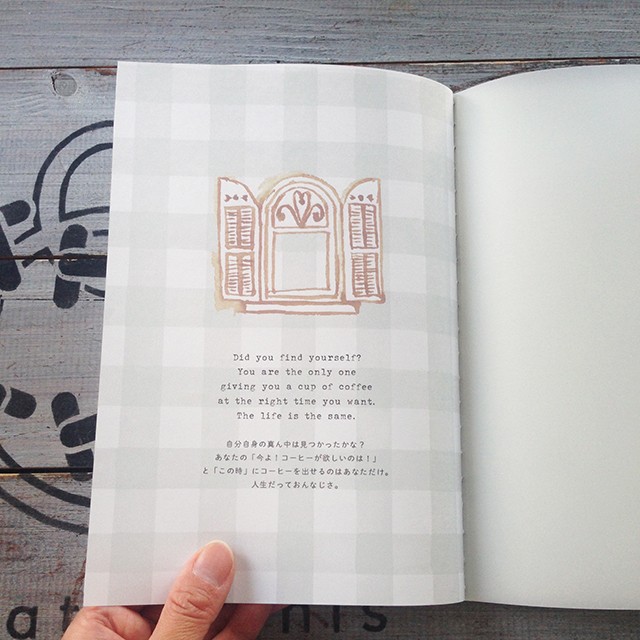 Did you find yourself?
You are the only one
giving you a cup of coffee
at the right time you want.
The life is the same.
自分自身の真ん中は見つかったかな？
あなたの「今よ！コーヒーが欲しいのは！」
と「この時」にコーヒーを出せるのはあなただけ。
人生だっておんなじさ。